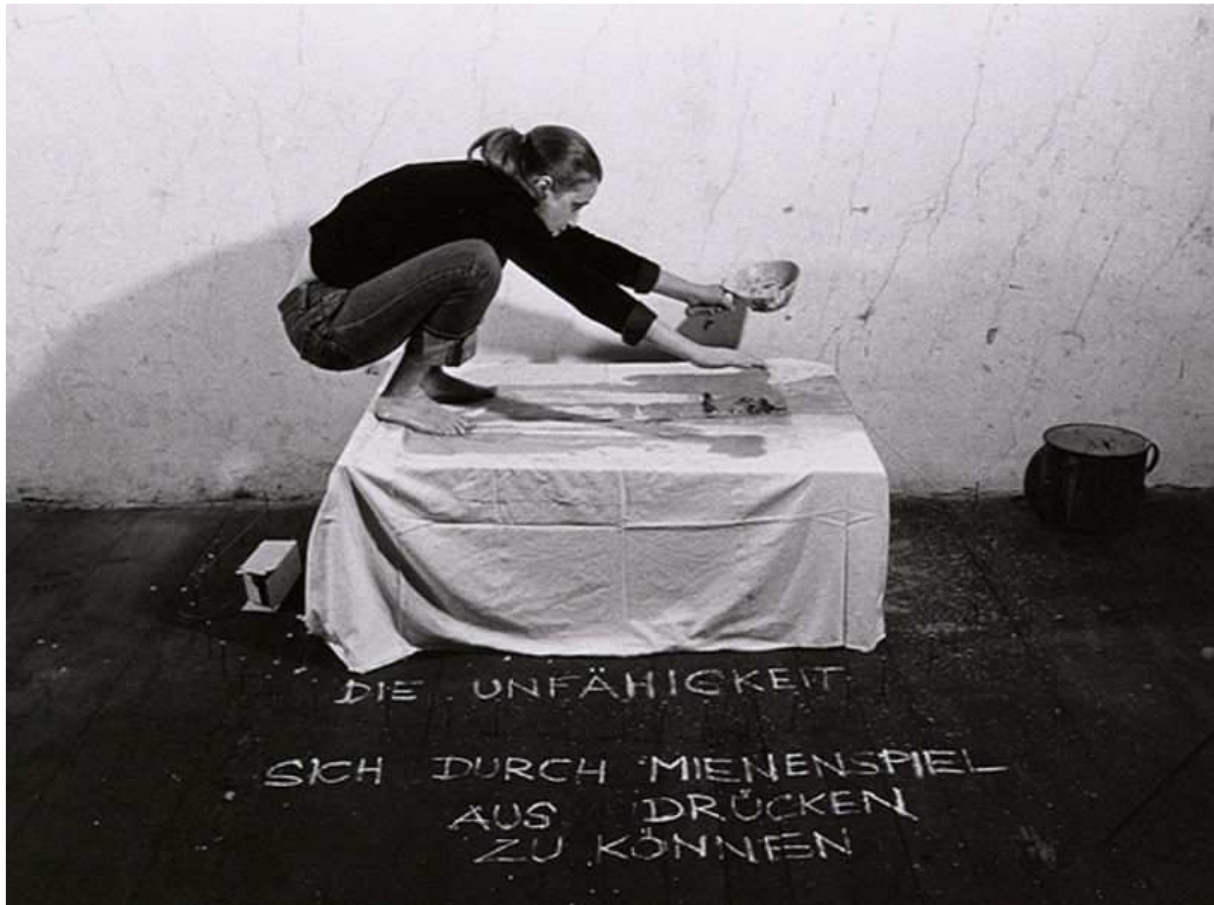 DIE UNFÄHIGKEIT
SICH DURCH MIENENSPIEL
AUS DRÜCKEN
ZU KÖNNEN